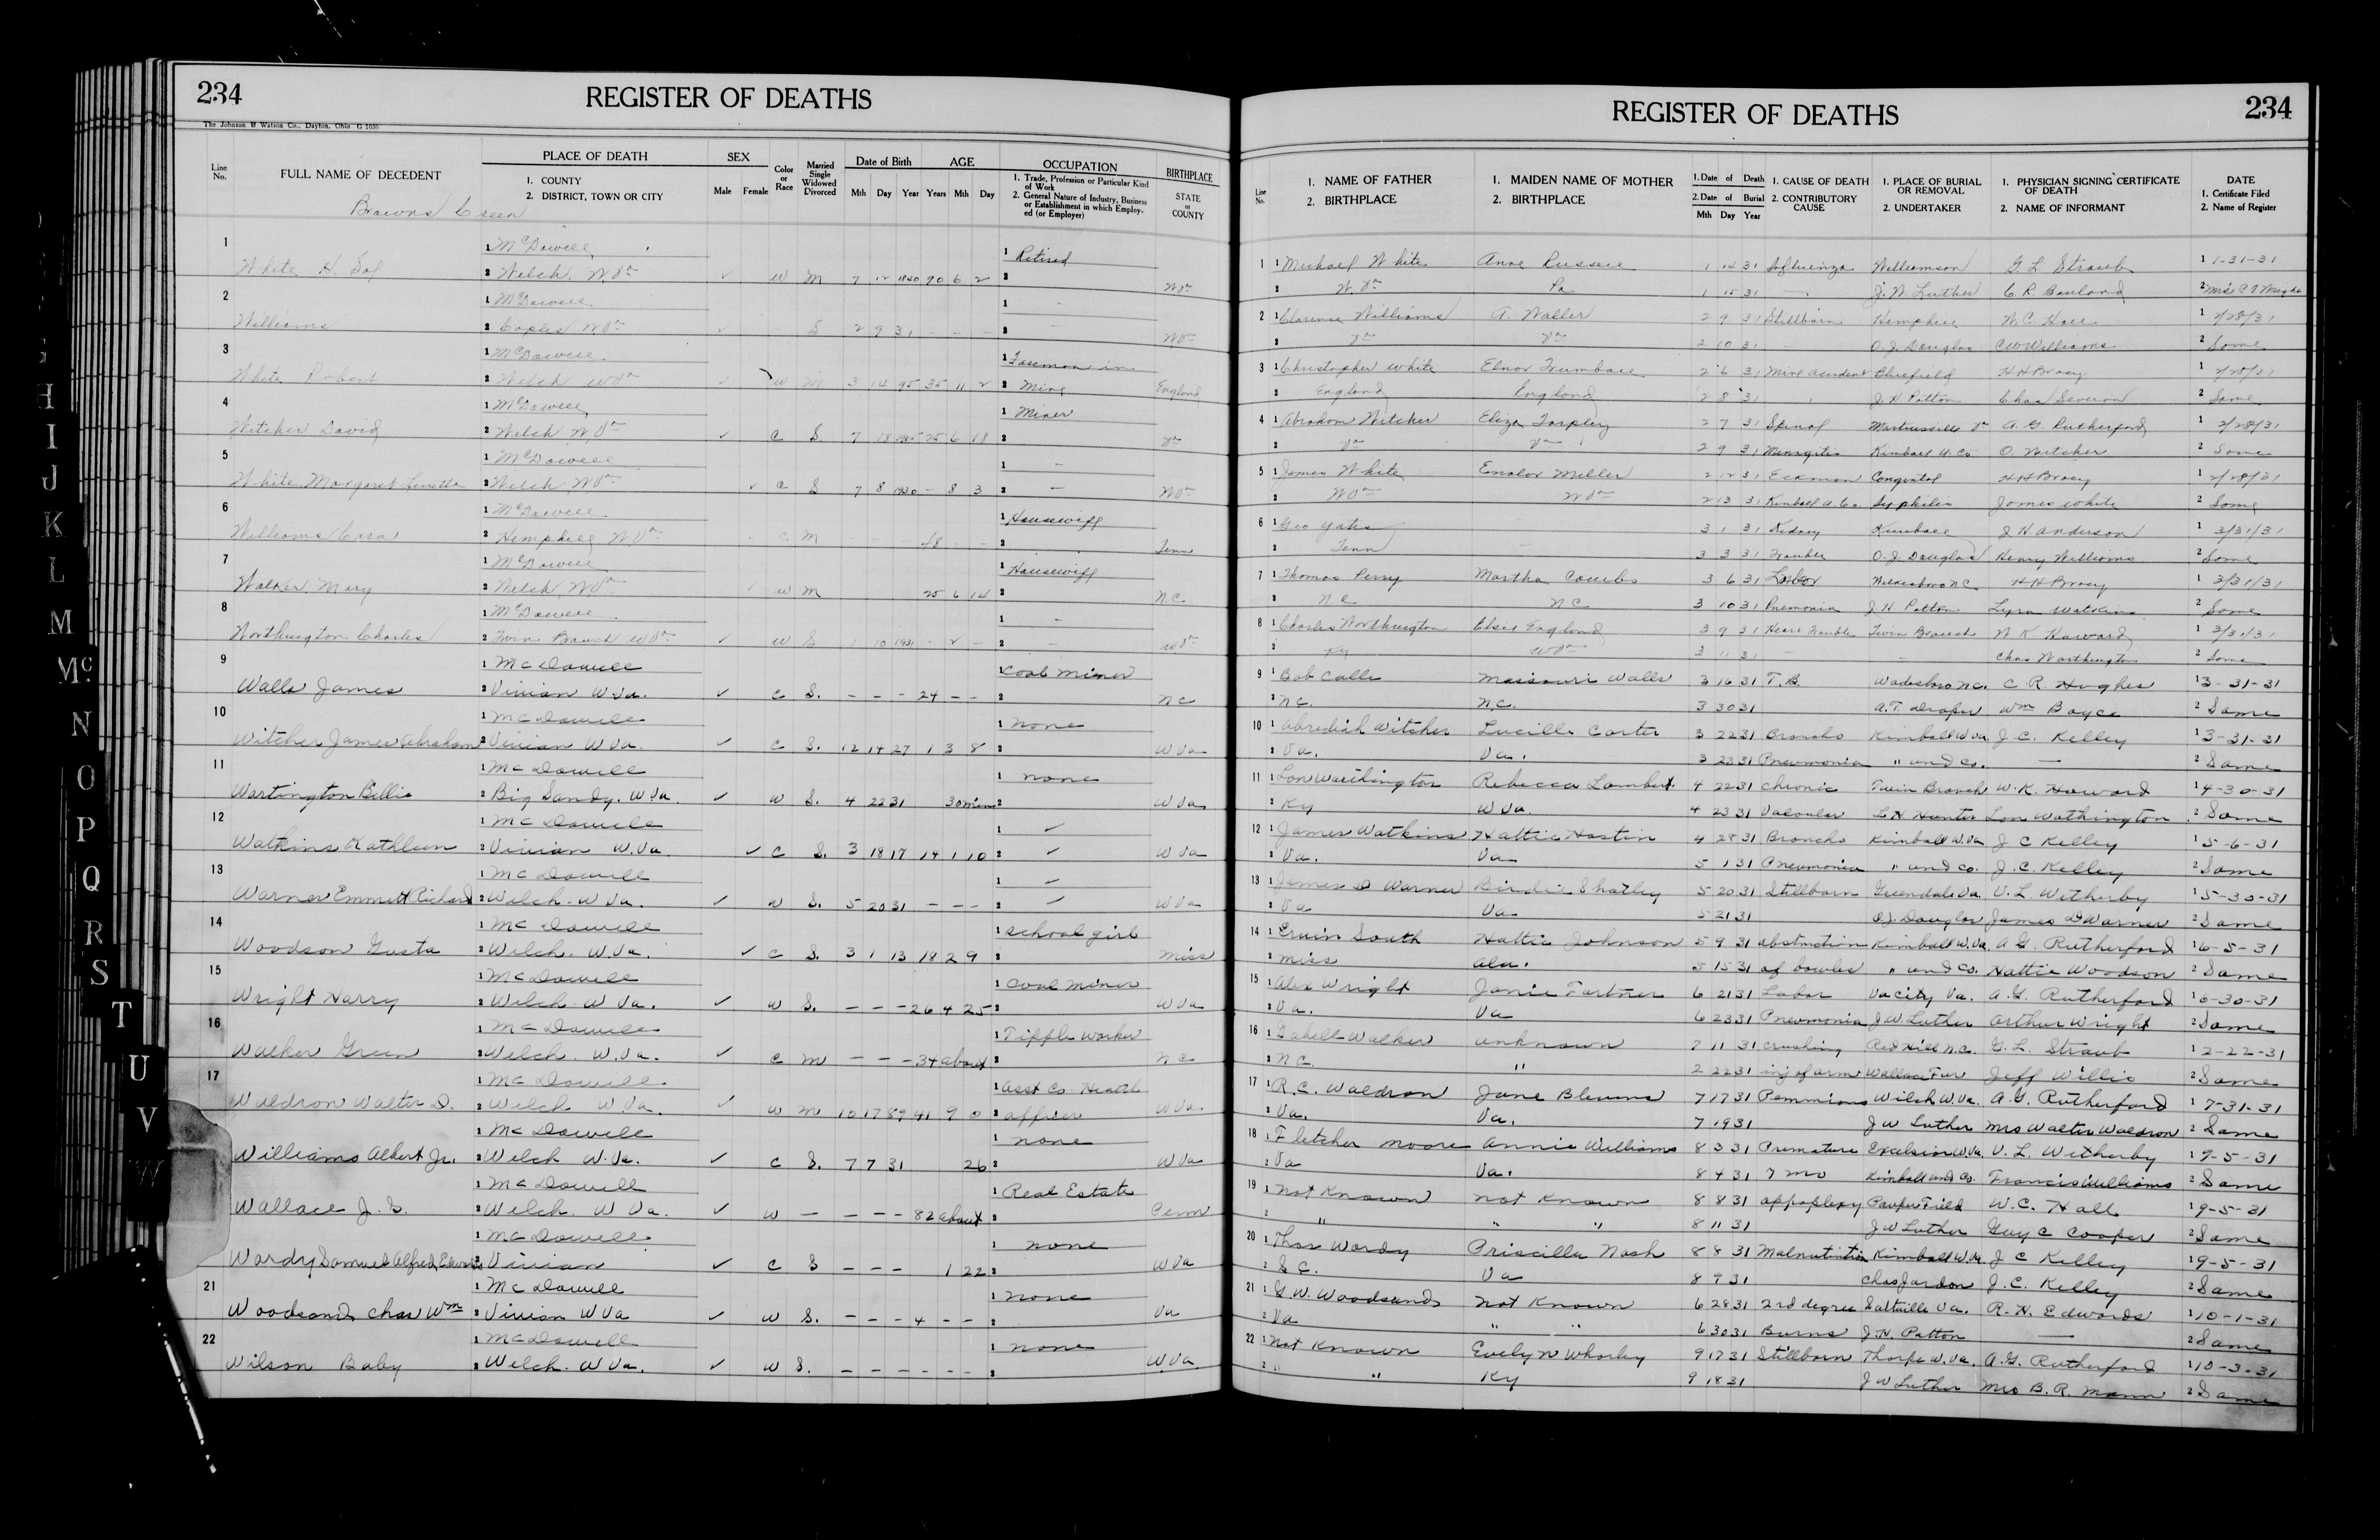 234
REGISTER OF DEATHS
The Johnson & Watson Co., Dayton, Ohio G 1036
Line No.
FULL NAME OF DECEDENT
PLACE OF DEATH
1. COUNTY
2. DISTRICT, TOWN OR CITY
SEX
Male Female
Color or Race
Married Single Widowed Divorced
Date of Birth
Mth Day Year
AGE
Years Mth Day
OCCUPATION
1. Trade, Profession or Particular Kind of Work
2. General Nature of Industry, Business or Establishment in which Employed (or Employer)
BIRTHPLACE
STATE or COUNTY
1 McDowell 1 Retired
White H. 2 Welch. W Va ✓ w M 7 12 1840 90 6 2 2 W Va
2 1 McDowell 1 -
Williams 2 W Va ✓ S 2 9 31 - - - 2 - W Va
3 1 McDowell 1 Foreman in
White Robert 2 Welch W Va ✓ w m 3 14 95 35 11 2 2 Mine England
4 1 McDowell 1 Miner
Witcher David 2 Welch W Va ✓ c S 7 18 1905 25 6 18 2 Va
5 1 McDowell 1 -
White Margaret 2 Welch W Va ✓ c S 7 8 1930 - 8 3 2 - W Va
6 1 McDowell 1 Housewife
Williams 2 Hemphill W Va c m - - - 48 - - 2 Tenn
7 1 McDowell 1 Housewife
Walker Mary 2 Welch W Va ✓ w m 25 6 14 2 N C.
8 1 McDowell 1 -
Worthington Charles 2 Twin Branch W Va ✓ w S 1 10 1931 - 2 - 2 - W Va
9 1 McDowell 1 Coal miner
Walls James 2 Vivian W.Va. ✓ c S. - - - 24 - - 2 N C
10 1 McDowell 1 none
Witcher James Abraham 2 Vivian W Va. ✓ c S. 12 14 27 1 3 8 2 W Va
11 1 McDowell 1 none
Wartington Billie 2 Big Sandy. W.Va. ✓ w S. 4 22 31 30 min 2 W Va
12 1 McDowell 1 ✓
Watkins Kathleen 2 Vivian W.Va. ✓ c S. 3 18 17 14 1 10 2 ✓ W Va
13 1 McDowell 1 ✓
Warner Emmett Richard 2 Welch. W Va. ✓ w S. 5 20 31 - - - 2 ✓ W Va
14 1 McDowell 1 school girl
Woodson Gusta 2 Welch. W Va. ✓ c S. 3 1 13 18 2 9 2 miss
15 1 McDowell 1 Coal miner
Wright Harry 2 Welch. W Va. ✓ w S. - - - 26 4 25 2 W Va
16 1 McDowell 1 Tipple worker
Walker Green 2 Welch. W.Va. ✓ c m - - - 34 about 2 N C
17 1 McDowell 1 Asst Co. Health
Waldron Walter D. 2 Welch. W Va. ✓ w m 10 17 89 41 9 0 2 officer W Va.
1 McDowell 1 none
Williams Albert Jr. 2 Welch W.Va. ✓ c S. 7 7 31 26 2 W Va
1 McDowell 1 Real Estate
Wallace J. 2 Welch. W Va. ✓ w - - - - 82 about 2 Penn
1 McDowell 1 none
Wardy Samuel Alfred 2 Vivian ✓ c S - - - 1 22 2 W Va
21 1 McDowell 1 none
Woodsands Chas Wm 2 Vivian W Va ✓ w S. - - - 4 - - 2 Va
22 1 McDowell 1 none
Wilson Baby 2 Welch. W Va. ✓ w S. - - - - - - 2 W.Va
H
I
J
K
L
M
Mc
N
O
P
Q
R
S
T
U
V
W
REGISTER OF DEATHS
234
Line No.
1. NAME OF FATHER
2. BIRTHPLACE
1. MAIDEN NAME OF MOTHER
2. BIRTHPLACE
1. Date of Death
2. Date of Burial
Mth Day Year
1. CAUSE OF DEATH
2. CONTRIBUTORY CAUSE
1. PLACE OF BURIAL OR REMOVAL
2. UNDERTAKER
1. PHYSICIAN SIGNING CERTIFICATE OF DEATH
2. NAME OF INFORMANT
DATE
1. Certificate Filed
2. Name of Register
1 1 Michael White Anne 1 14 31 Influenza Williamson G L Straub 1 1-31-31
2 W. Va Pa 1 15 31 - J. W. Luther C. R. 2 Mrs C
2 1 Clarence Williams Waller 2 9 31 Stillborn Hemphill W. C. Hall 1 2/28/31
2 Va Va 2 10 31 - O. J. Douglas C W Williams 2 Same
3 1 Christopher White Elnor 2 6 31 Mine accident Bluefield H H Bracy 1 2/28/31
2 England England 2 8 31 J. H. Patton Chas 2 Same
4 1 Abraham Witcher Eliza Tarpley 2 7 31 Spinal Martinsville Va A. G. Rutherford 1 2/28/31
2 Va Va 2 9 31 Meningitis Kimball U. Co O. Witcher 2 Same
5 1 James White Miller 2 12 31 Eckman Congental H H Bracy 1 2/28/31
2 W Va W Va 2 13 31 Kimball U. Co. Syphilis James White 2 Same
6 1 Geo Yates - 3 1 31 Kidney Kimball J. H. Anderson 1 3/31/31
2 Tenn - 3 3 31 Trouble O. J. Douglas Henry Williams 2 Same
7 1 Thomas Perry Martha Combs 3 6 31 Lobar N C H H Bracy 1 3/31/31
2 N C N C 3 10 31 Pnemonia J. H. Patton 2 Same
8 1 Charles Worthington Elsie England 3 9 31 Heart Trouble Twin Branch W K Howard 1 3/31/31
2 Ky W Va 3 11 31 - - Chas Worthington 2 Same
9 1 Bob Calls Missouri Walls 3 16 31 T.B. Wadesboro N.C. C. R. Hughes 1 3-31-31
2 N C. N.C. 3 30 31 A.T. Draper Wm Boyce 2 Same
10 1 Witcher Lucille Carter 3 22 31 Broncho Kimball W.Va. J C. Kelley 1 3-31-31
2 Va. Va. 3 23 31 Pneumonia " und Co. - 2 Same
11 1 Lon Warthington Rebecca Lambert 4 22 31 Chronic Twin Branch W. K. Howard 1 4-30-31
2 Ky W Va. 4 23 31 Valvular L H Hunter Lon Wathington 2 Same
12 1 James Watkins Hattie Hastin 4 28 31 Broncho Kimball W.Va J C Kelley 1 5-6-31
2 Va. Va 5 1 31 Pneumonia " und Co. J. C. Kelley 2 Same
13 1 James D Warner Birdie Shatley 5 20 31 Stillborn Greendale Va. V. L. Witherby 1 5-30-31
2 Va Va 5 21 31 O J. Douglas James D Warner 2 Same
14 1 Ervin South Hattie Johnson 5 9 31 abstruction Kimball W.Va. A G. Rutherford 1 6-5-31
2 miss ala. 5 15 31 of bowles " und Co. Hattie Woodson 2 Same
15 1 Alex Wright Janie Fortner 6 21 31 Lobar Va City Va. A. G. Rutherford 1 6-30-31
2 Va. Va 6 23 31 Pneumonia J W Luther Arthur Wright 2 Same
16 1 Walker unknown 2 11 31 crushing Red Hill N.C. G. L. Straub 1 2-22-31
2 N C. " 2 22 31 inj of arm Wallace Fur Jeff Willis 2 Same
17 1 R.C. Waldron Jane Blevins 7 17 31 Welch W.Va. A. G. Rutherford 1 7-31-31
2 Va. Va. 7 19 31 J W Luther Mrs Walter Waldron 2 Same
18 1 Fletcher Moore Annie Williams 8 3 31 Premature Excelsior W.Va. V. L. Witherby 1 9-5-31
2 Va Va. 8 4 31 7 mo Kimball und Co. Francis Williams 2 Same
19 1 Not Known not Known 8 8 31 appoplexy Pauper Field W. C. Hall 1 9-5-31
2 " " " 8 11 31 J W Luther Guy C Cooper 2 Same
20 1 Thos Wardy Priscilla Nash 8 8 31 Malnutrition Kimball W.Va. J C Kelley 1 9-5-31
2 S C. Va 8 9 31 Chas Jordon J. C. Kelley 2 Same
21 1 G. W. Woodsands Not Known 6 28 31 2nd degree Saltville Va. R. H. Edwards 1 10-1-31
2 Va " " 6 30 31 Burns J. H. Patton - 2 Same
22 1 Not Known Evelyn Whorley 9 17 31 Stillborn Thorpe W.Va. A. G. Rutherford 1 10-3-31
2 " " Ky 9 18 31 J W Luther Mrs B. R. Mann 2 Same